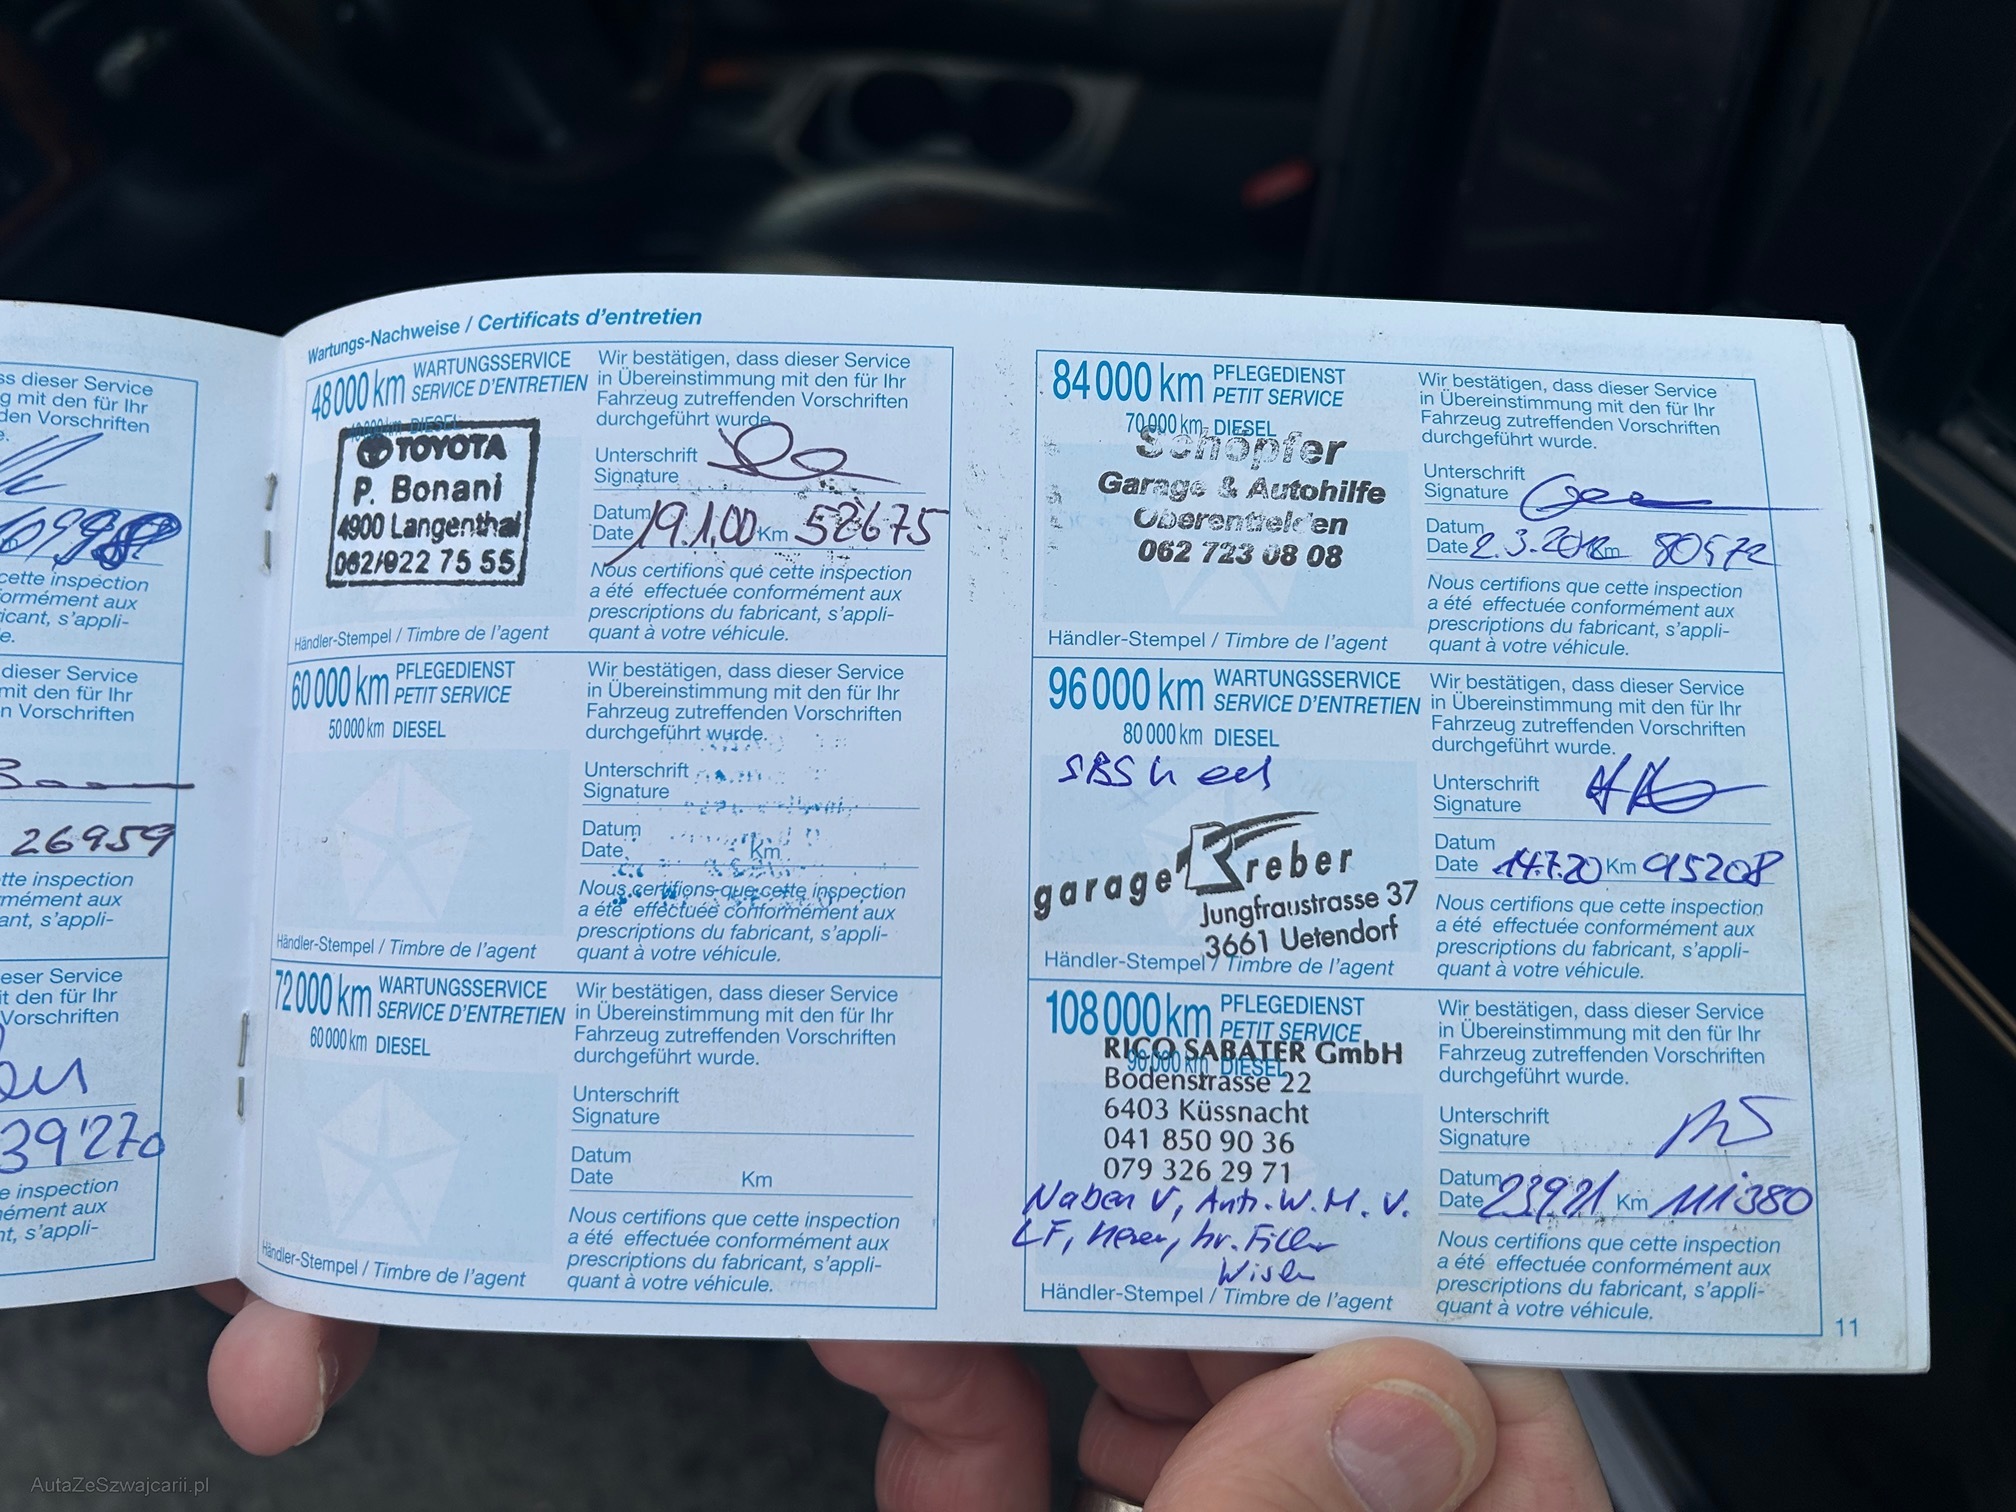 ss dieser Service
g mit den für Ihr
den Vorschriften
e.
cette inspection
formément aux
icant, s'appli-
e.
dieser Service
mit den für Ihr
n Vorschriften
26959
tte inspection
mément aux
ant, s'appli-
eser Service
it den für Ihr
Vorschriften
39'270
e inspection
ément aux
nt, s'appli-
Wartungs-Nachweise / Certificats d'entretien
48 000 km WARTUNGSSERVICE
SERVICE D'ENTRETIEN
DIESEL
TOYOTA
P. Bonani
4900 Langenthal
062/922 75 55
Händler-Stempel / Timbre de l'agent
Wir bestätigen, dass dieser Service
in Übereinstimmung mit den für Ihr
Fahrzeug zutreffenden Vorschriften
durchgeführt wurde.
Unterschrift
Signature
Datum
Date 19.1.00 Km 52675
Nous certifions que cette inspection
a été effectuée conformément aux
prescriptions du fabricant, s'appli-
quant à votre véhicule.
60 000 km PFLEGEDIENST
PETIT SERVICE
50 000 km DIESEL
Händler-Stempel / Timbre de l'agent
Wir bestätigen, dass dieser Service
in Übereinstimmung mit den für Ihr
Fahrzeug zutreffenden Vorschriften
durchgeführt wurde.
Unterschrift
Signature
Datum
Date Km
Nous certifions que cette inspection
a été effectuée conformément aux
prescriptions du fabricant, s'appli-
quant à votre véhicule.
72 000 km WARTUNGSSERVICE
SERVICE D'ENTRETIEN
60 000 km DIESEL
Händler-Stempel / Timbre de l'agent
Wir bestätigen, dass dieser Service
in Übereinstimmung mit den für Ihr
Fahrzeug zutreffenden Vorschriften
durchgeführt wurde.
Unterschrift
Signature
Datum
Date Km
Nous certifions que cette inspection
a été effectuée conformément aux
prescriptions du fabricant, s'appli-
quant à votre véhicule.
84 000 km PFLEGEDIENST
PETIT SERVICE
70 000 km DIESEL
Schöpfer
Garage & Autohilfe
Oberentfelden
062 723 08 08
Händler-Stempel / Timbre de l'agent
Wir bestätigen, dass dieser Service
in Übereinstimmung mit den für Ihr
Fahrzeug zutreffenden Vorschriften
durchgeführt wurde.
Unterschrift
Signature
Datum
Date 2.3.2012 Km 80572
Nous certifions que cette inspection
a été effectuée conformément aux
prescriptions du fabricant, s'appli-
quant à votre véhicule.
96 000 km WARTUNGSSERVICE
SERVICE D'ENTRETIEN
80 000 km DIESEL
garage Kreber
Jungfraustrasse 37
3661 Uetendorf
Händler-Stempel / Timbre de l'agent
Wir bestätigen, dass dieser Service
in Übereinstimmung mit den für Ihr
Fahrzeug zutreffenden Vorschriften
durchgeführt wurde.
Unterschrift
Signature
Datum
Date 14.7.20 Km 95208
Nous certifions que cette inspection
a été effectuée conformément aux
prescriptions du fabricant, s'appli-
quant à votre véhicule.
108 000 km PFLEGEDIENST
PETIT SERVICE
90 000 km DIESEL
RICO SABATER GmbH
Bodenstrasse 22
6403 Küssnacht
041 850 90 36
079 326 29 71
Naben V, Antr. W. M. V.
LF,
Händler-Stempel / Timbre de l'agent
Wir bestätigen, dass dieser Service
in Übereinstimmung mit den für Ihr
Fahrzeug zutreffenden Vorschriften
durchgeführt wurde.
Unterschrift
Signature
Datum
Date 23.9.21 Km 111'380
Nous certifions que cette inspection
a été effectuée conformément aux
prescriptions du fabricant, s'appli-
quant à votre véhicule.
11
AutaZeSzwajcarii.pl